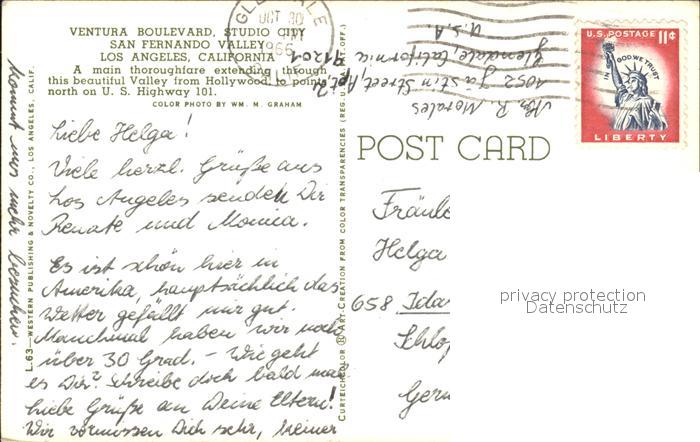 VENTURA BOULEVARD, STUDIO CITY
SAN FERNANDO VALLEY
LOS ANGELES, CALIFORNIA
A main thoroughfare extending through
this beautiful Valley from Hollywood to points
north on U. S. Highway 101.
COLOR PHOTO BY WM. M. GRAHAM
Liebe Helga!
Viele herzl. Grüße aus
Los Angeles senden Dir
Renate und Monica.
Es ist schön hier in
Amerika, hauptsächlich das
Wetter gefällt mir gut.
Manchmal haben wir noch
über 30 Grad. – Wie geht
es Dir? Schreibe doch bald mal
Liebe Grüße an Deine Eltern!
Wir vermissen Dich sehr, keiner
kommt uns mehr besuchen.
L.63—WESTERN PUBLISHING & NOVELTY CO., LOS ANGELES, CALIF.
CURTEICHCOLOR ® ART-CREATION FROM COLOR TRANSPARENCIES (REG. U.S. PAT. OFF.)
GLENDALE
OCT 30
PM
1966
R. Morales
1052 Street, Apt 2
Glendale, California
91201
U.S.A.
U.S. POSTAGE 11¢
IN GOD WE TRUST
LIBERTY
POST CARD
Fräule
Helga
658 Idar
Schlo
Germ
privacy protection
Datenschutz